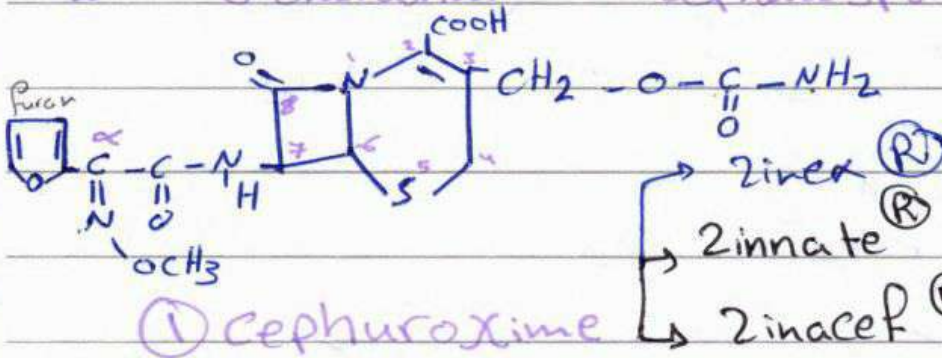 COOH
O N 1 2 3 CH2 - O - C - NH2
furan 8 O
α 7 6 5 4
O C - C - N S
N O H
OCH3
→ 2inex ®
→ 2innate ®
① cephuroxime → 2inacef ®